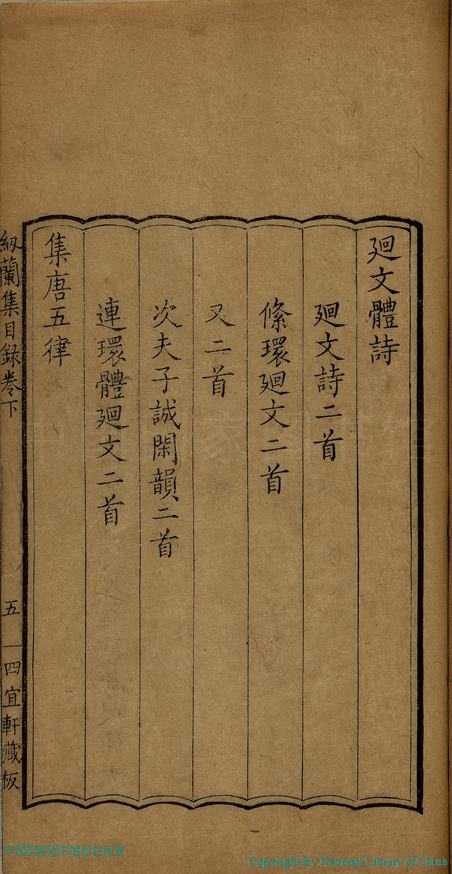 廻文體詩
廻文詩二首
絛環廻文二首
又二首
次夫子誠閑韻二首
連環體廻文二首
集唐五律
紉蘭集目錄卷下
五
四宜軒藏板
Copyright By National Library of China